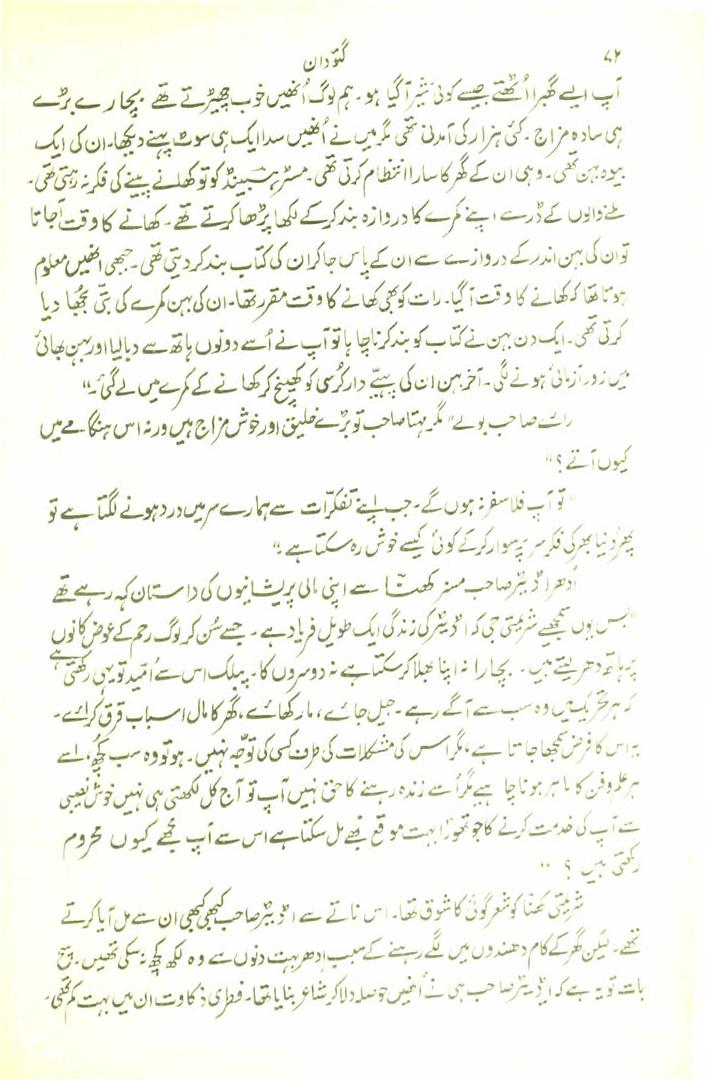 ۷۲
گئودان
آپ ایسے گھبرا اُٹھتے جیسے کوئی شیر آ گیا ہو۔ ہم لوگ اُنھیں خوب چھیڑتے تھے بچارے بڑے
ہی سادہ مزاج۔ کئی ہزار کی آمدنی تھی مگر میں نے اُنھیں سدا ایک ہی سوٹ پہنے دیکھا۔ ان کی ایک
بیوہ بہن تھی۔ وہی ان کے گھر کا سارا انتظام کرتی تھی۔ مسٹر کو تو کھانے پینے کی فکر نہ رہتی تھی۔
ملنے والوں کے ڈر سے اپنے کمرے کا دروازہ بند کر کے لکھا پڑھا کرتے تھے۔ کھانے کا وقت آ جاتا
تو ان کی بہن اندر کے دروازے سے ان کے پاس جا کر ان کی کتاب بند کر دیتی تھی۔ جبھی انھیں معلوم
ہوتا تھا کہ کھانے کا وقت آ گیا۔ رات کو بھی کھانے کا وقت مقرر تھا۔ ان کی بہن کمرے کی بتّی بجھا دیا
کرتی تھی۔ ایک دن بہن نے کتاب کو بند کرنا چاہا تو آپ نے اُسے دونوں ہاتھ سے دبا لیا اور بہن بھائی
میں زور آزمائی ہونے لگی۔ آخر بہن ان کی پہیّے دار کُرسی کو کھینچ کر کھانے کے کمرے میں لے گئی۔"
رائے صاحب بولے" مگر مہتا صاحب تو بڑے خلیق اور خوش مزاج ہیں ورنہ اس ہنگامے میں
کیوں آتے؟"
"تو آپ فلاسفر نہ ہوں گے۔ جب اپنے تفکرّات سے ہمارے سر میں درد ہونے لگتا ہے تو
پھر دُنیا بھر کی فکر سر پر سوار کر کے کوئی کیسے خوش رہ سکتا ہے۔"
اُدھر اڈیٹر صاحب مسز کھنّا سے اپنی مالی پریشانیوں کی داستان کہہ رہے تھے
"بس یوں سمجھیے شریمتی جی کہ اڈیٹر کی زندگی ایک طویل فریاد ہے۔ جسے سُن کر لوگ رحم کے عوض کانوں
پر ہاتھ دھر لیتے ہیں۔ بچارا نہ اپنا بھلا کر سکتا ہے نہ دوسروں کا۔ پبلک اس سے اُمّید تو یہی رکھتی ہے
کہ ہر تحریک میں وہ سب سے آگے رہے۔ جیل جائے، مار کھائے، گھر کا مال اسباب قرق کرائے۔
یہ اس کا فرض سمجھا جاتا ہے، مگر اس کی مشکلات کی طرف کسی کی توجّہ نہیں۔ ہو تو وہ سب کچُھ، اسے
ہر علم و فن کا ماہر ہونا چاہیے مگر اُسے زندہ رہنے کا حق نہیں آپ تو آج کل لکھتی ہی نہیں خوش نصیبی
سے آپ کی خدمت کرنے کا جو تھوڑا بہت موقع مجھے مل سکتا ہے اس سے آپ مجھے کیوں محروم
رکھتی ہیں؟"
شریمتی کھنّا کو شعر گوئی کا شوق تھا۔ اس ناتے سے اڈیٹر صاحب کبھی کبھی ان سے مل آیا کرتے
تھے۔ لیکن گھر کے کام دھندوں میں لگے رہنے کے سبب اِدھر بہت دنوں سے وہ لکھ کچھ نہ سکی تھیں۔ سچ
بات تو یہ ہے کہ ایڈیٹر صاحب ہی نے اُنھیں حوصلہ دلا کر شاعر بنایا تھا۔ فطری ذکاوت ان میں بہت کم تھی۔